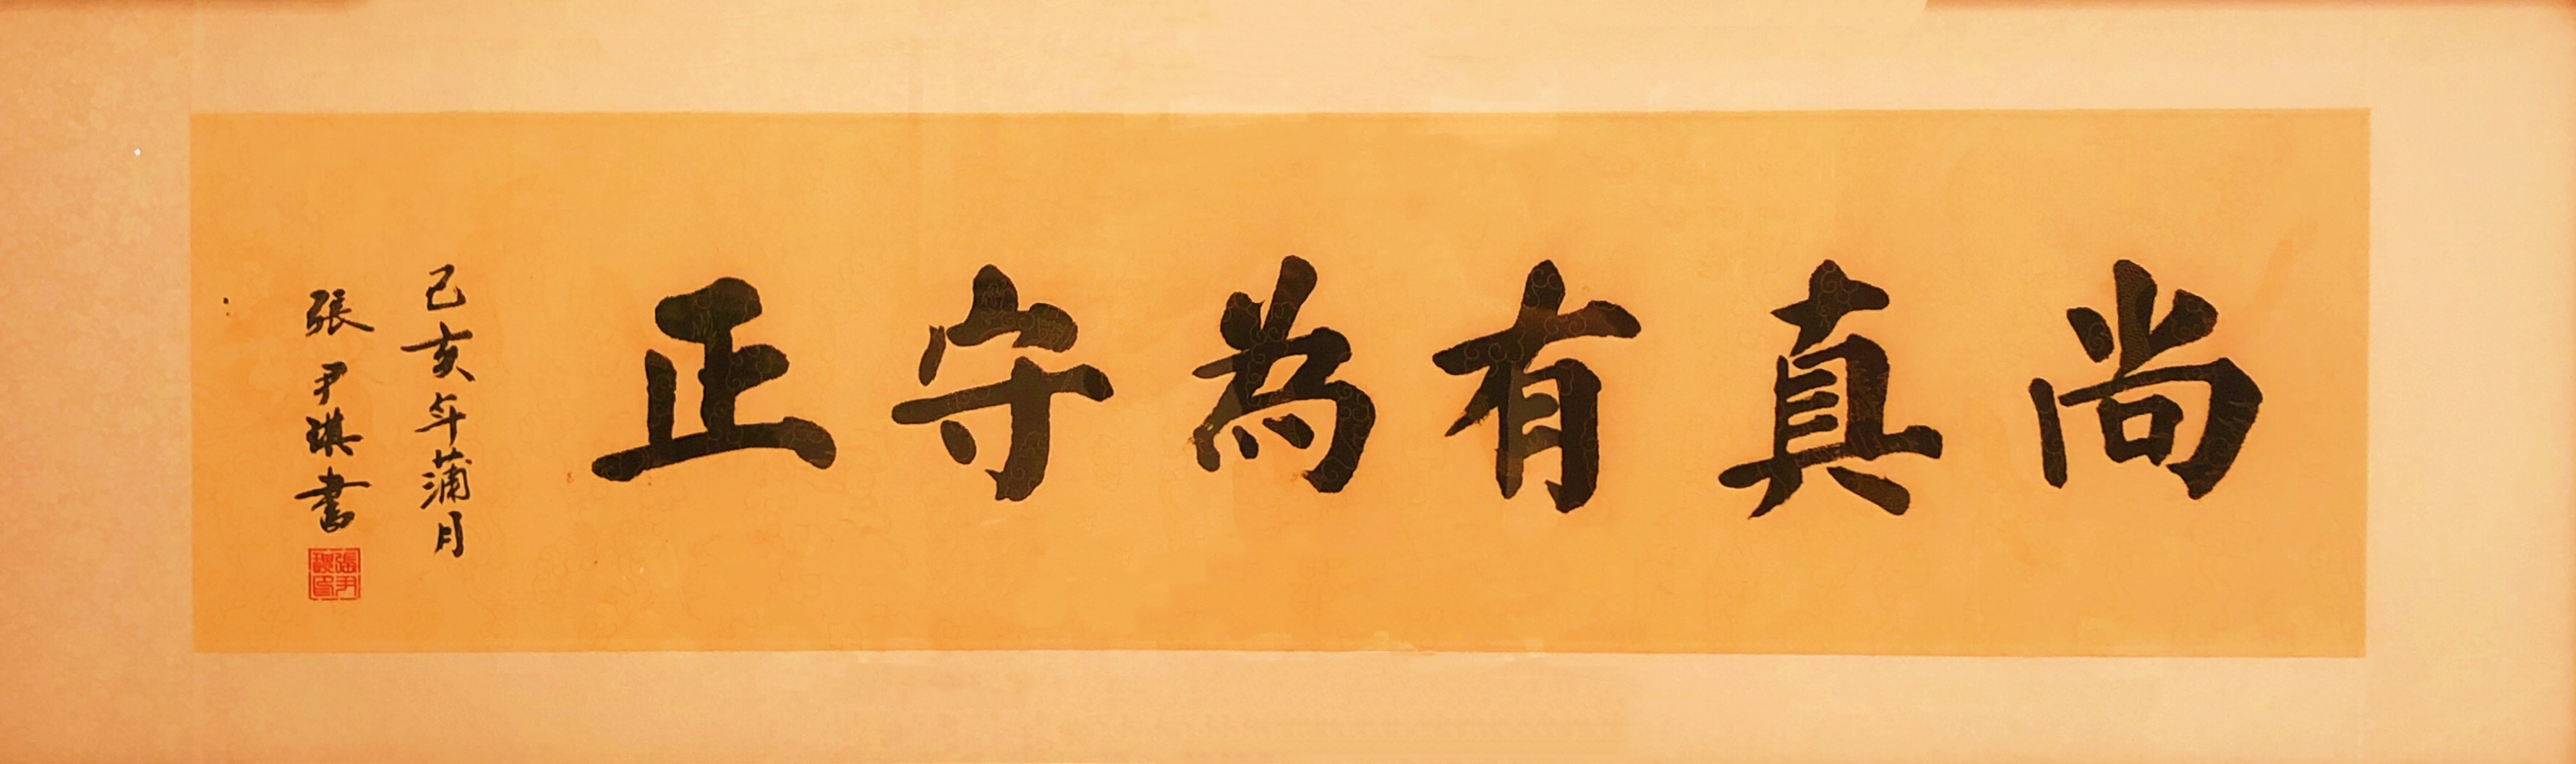 尚真有為守正
己亥年蒲月
張尹琪書
張尹琪印